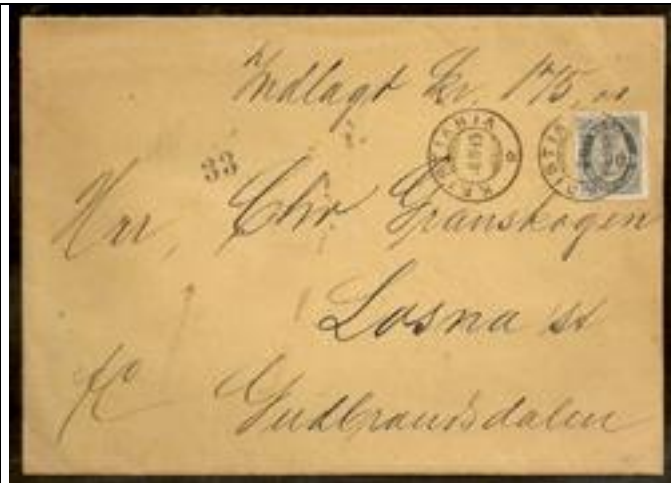 Indlagt Kr. 175,00
KRISTIANIA
33
Herr Chr Granskogen
Losna st
Gudbrandsdalen